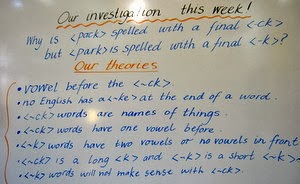 Our investigation this week!
Why is <pack> spelled with a final <ck>
but <park> is spelled with a final <-k>?
Our theories
• vowel before the <~ck>.
• no English has a <~ke> at the end of a word.
• <~ck> words are names of things.
• <~ck> words have one vowel before.
• <~k> words have two vowels or no vowels in front
• <~ck> is a long <k> and <-k> is a short <~k>.
• <~k> words will not make sense with <ck>.